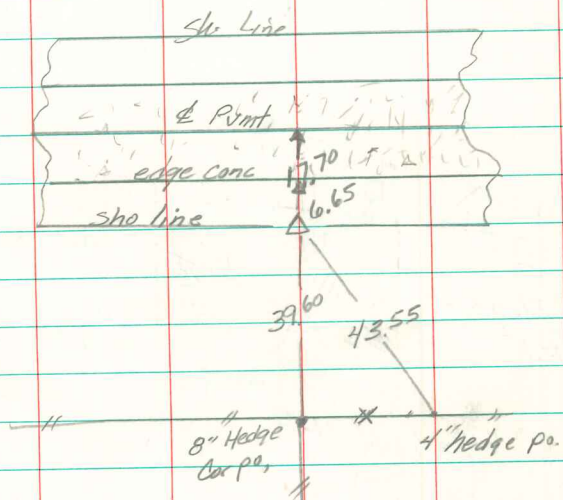 Sho Line
℄ Pvmt.
edge conc
17.70
6.65
sho line
39.60
43.55
8" Hedge
Cor po.
4" hedge po.